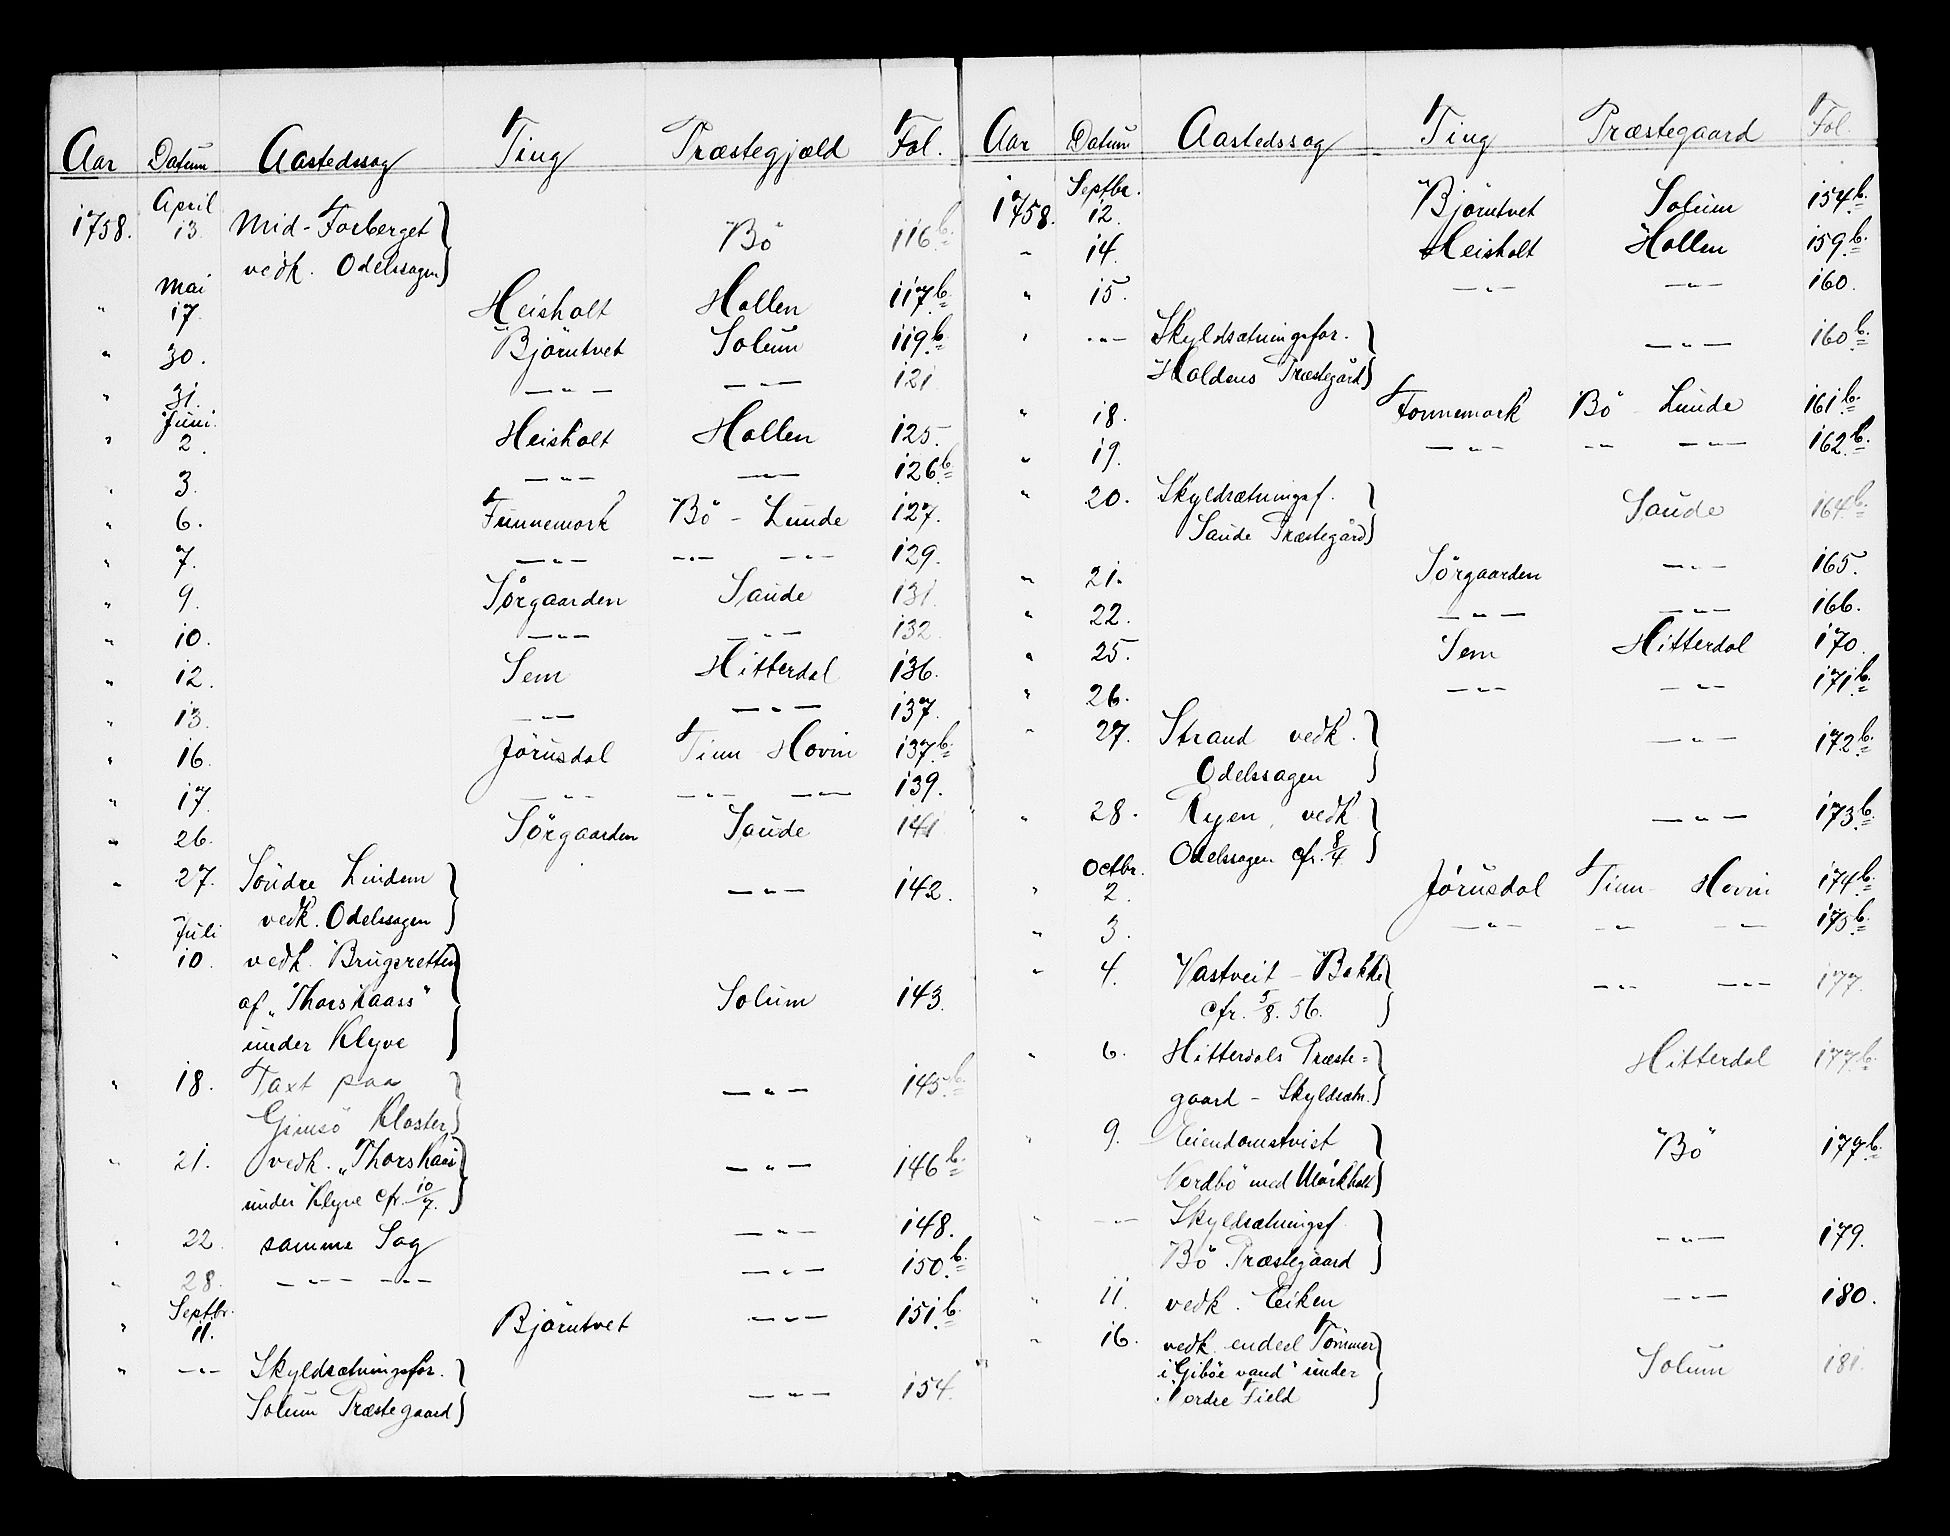 Aar Datum Aastedssag Ting Præstegjæld Fol.
April
1758. 13. Mid-Forberget Bö 116b.
vedk. Odelssagen
Mai
" 17. Heisholt Hollen 117b.
" 30. Björntvet Solum 119b.
" 31. —"— —"— 121
Juni
" 2. Heisholt Hollen 125.
" 3. —"— —"— 126b.
" 6. Funnemark Bö - Lunde 127.
" 7. —"— —"— —"— 129.
" 9. Sörgaarden Saude 131.
" 10. —"— —"— 132
" 12. Sem Hitterdal 136.
" 13. —"— —"— 137.
" 16. Jörusdal Tinn Hovin 137b.
" 17. —"— —"— —"— 139.
" 26. Sörgaarden Saude 141
" 27. Söndre Lindem —"— 142.
vedk. Odelssagen
Juli
" 10. vedk. Brugsretten
af „Thorskaas" Solum 143.
under Klyve
" 18. Taxt paa —"— 145b.
Gimsö Kloster
" 21. vedk. „Thorskaas —"— 146b.
under Klyve cfr. 10/7.
" 22. samme Sag —"— 148.
" 28. —"— —"— —"— 150b.
Septbr.
" 11. Björntvet —"— 151b.
" —"— Skyldsætningsfor. —"— 154.
Solum Præstegaard
Aar Datum Aastedssag Ting Præstegaard Fol.
Septbr.
1758. 12. Björntvet Solum 154b.
" 14. Heisholt Hollen 159b.
" 15. —"— —"— 160.
" —"— Skyldsætningsfor. —"— 160b.
Holdens Præstegård
" 18. Fonnemark Bö - Lunde 161b.
" 19. —"— —"— —"— 162b.
" 20. Skyldsætningsf. Saude 164b.
Saude Præstegård
" 21. Sörgaarden —"— 165.
" 22. —"— —"— 166.
" 25. Sem Hitterdal 170.
" 26. —"— —"— 171b.
" 27. Strand vedk. —"— 172b.
Odelssagen
" 28. Ryen, vedk. —"— 173b.
Odelssagen cfr. 8/4
Octbr.
" 2. Jörusdal Tinn - Hovin 174b.
" 3. —"— —"— —"— 175b.
" 4. Vastveit - Bakke —"— —"— 177.
cfr. 5/8. 56.
" 6. Hitterdals Præste= Hitterdal 177b.
gaard - Skyldsætn.
" 9. Eiendomstvist Bö 179b.
Nordbö med Mörkholt
" —"— Skyldsætningsf. —"— 179.
Bö Præstegaard
" 11. vedk. Eiken —"— 180.
" 16. vedk. endeel Tömmer Solum 181.
i „Giböe vand" under
Nordre Field